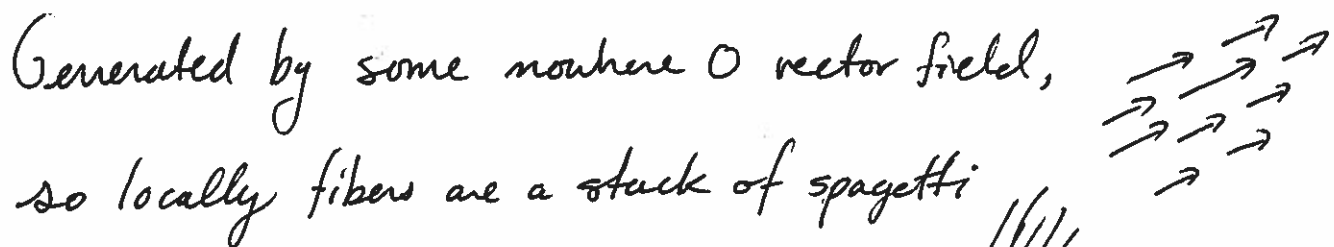 Generated by some nowhere 0 vector field,
so locally fibers are a stack of spagetti